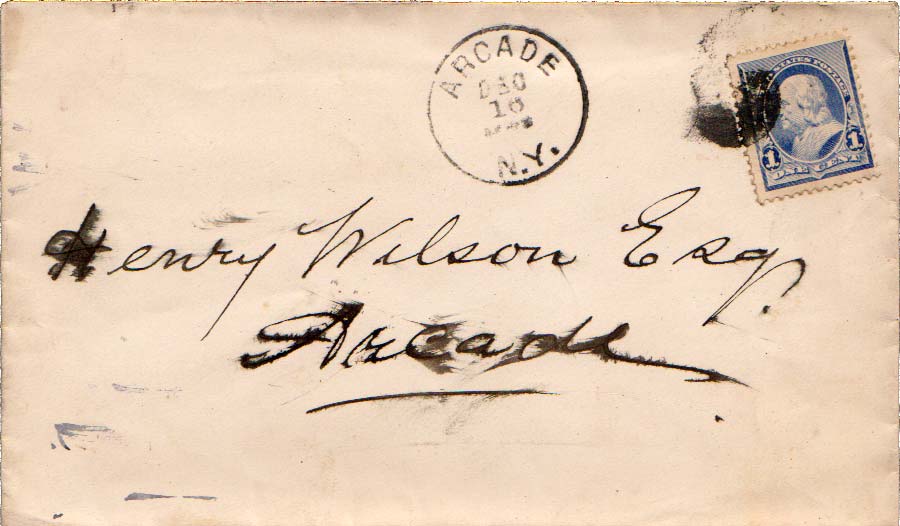 ARCADE
DEC
10
N.Y.
UNITED STATES POSTAGE
1 1
ONE CENT
Henry Wilson Esq.
Arcade